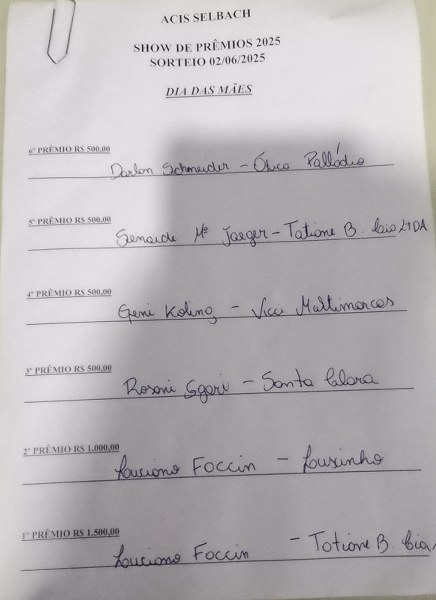 ACIS SELBACH
SHOW DE PRÊMIOS 2025
SORTEIO 02/06/2025
DIA DAS MÃES
6º PRÊMIO R$ 500,00
Darlon Schneider - Ótica Palládio
5º PRÊMIO R$ 500,00
Mª Jaeger - Tatiane B. LTDA
4º PRÊMIO R$ 500,00
Geni Koling - Vica Multimarcas
3º PRÊMIO R$ 500,00
Rosani Sgari - Santa Clara
2º PRÊMIO R$ 1.000,00
Luciano Foccin - Lourinho
1º PRÊMIO R$ 1.500,00
Luciano Foccin - Tatiane B. Cia